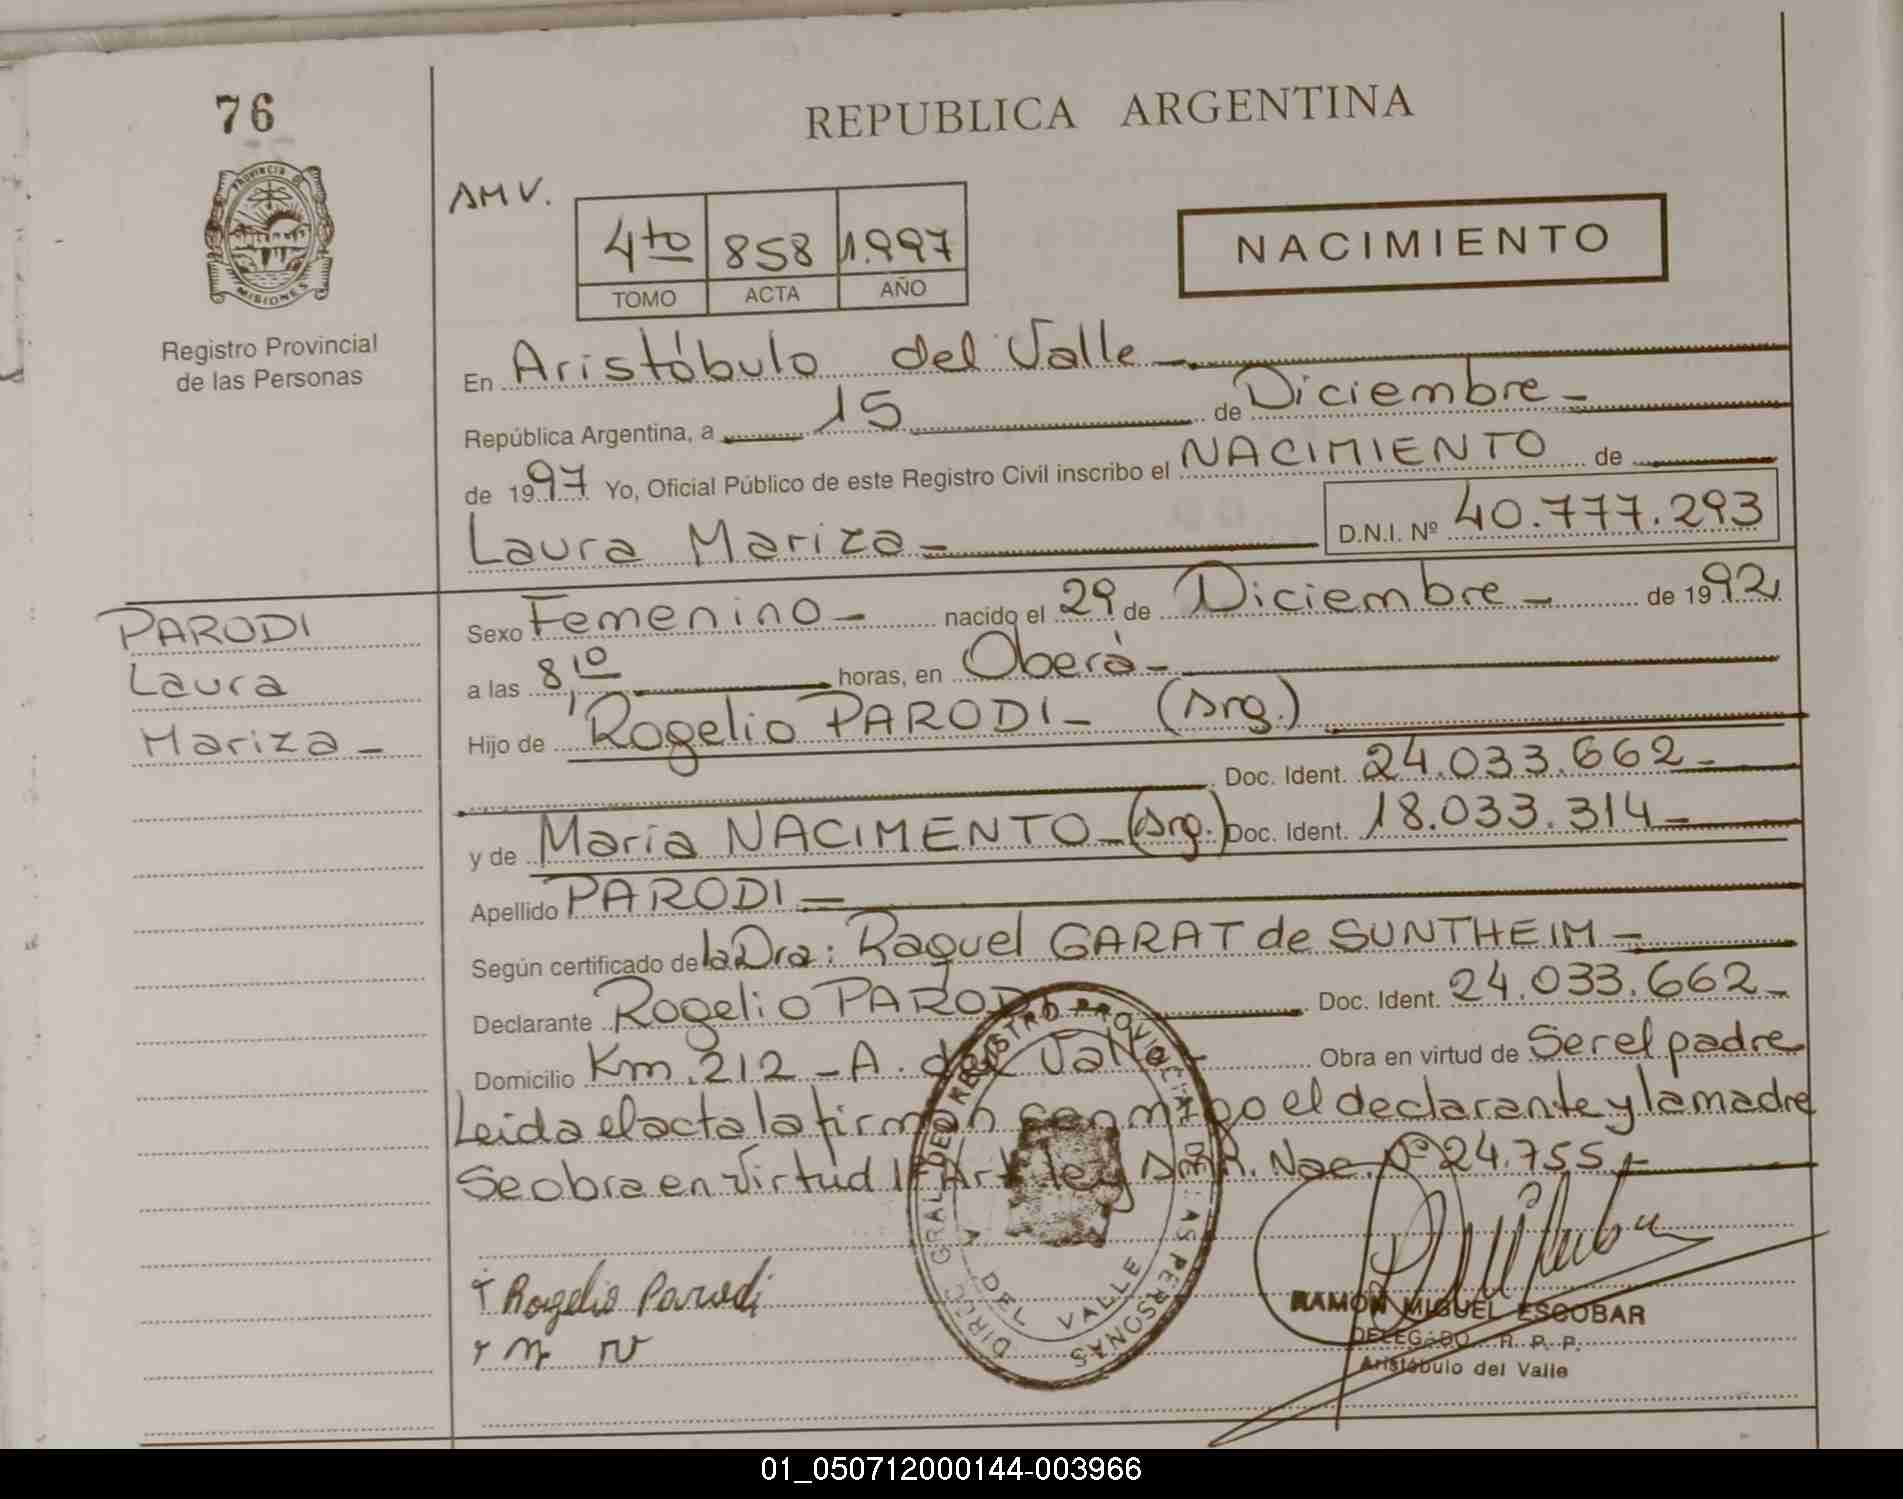 76
REPUBLICA ARGENTINA
PROVINCIA DE
MISIONES
Registro Provincial
de las Personas
AMV.
4to 858 1.997
TOMO ACTA AÑO
NACIMIENTO
En Aristóbulo del Valle
República Argentina, a 15 de Diciembre
de 1997 Yo, Oficial Público de este Registro Civil inscribo el NACIMIENTO de
Laura Mariza D.N.I. Nº 40.777.293
PARODI
Laura
Mariza
Sexo Femenino nacido el 29 de Diciembre de 1992
a las 8,10 horas, en Oberá
Hijo de Rogelio PARODI (Arg.)
Doc. Ident. 24.033.662
y de María NACIMENTO (Arg.) Doc. Ident. 18.033.314
Apellido PARODI
Según certificado de la Dra: Raquel GARAT de SUNTHEIM
Declarante Rogelio PARODI Doc. Ident. 24.033.662
Domicilio Km. 212 - A. del Valle Obra en virtud de Ser el padre
Leida el acta la firman conmigo el declarante y la madre
Se obra en Virtud Art ley Nac. Nº 24.755
DIREC. GRAL. DEL REGISTRO PROVINCIAL DE LAS PERSONAS
A. DEL VALLE
Rogelio Parodi
RAMON MIGUEL ESCOBAR
DELEGADO R. P. P.
Aristóbulo del Valle
01_050712000144-003966